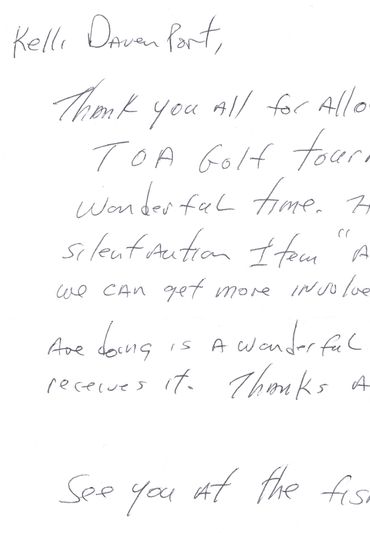 Kelli Davenport,
Thank you All for Allo
TOA Golf tour
wonderful time. H
silent Aution Item "A
we can get more involve
Are doing is A wonderful
receives it. Thanks A
See you at the fis